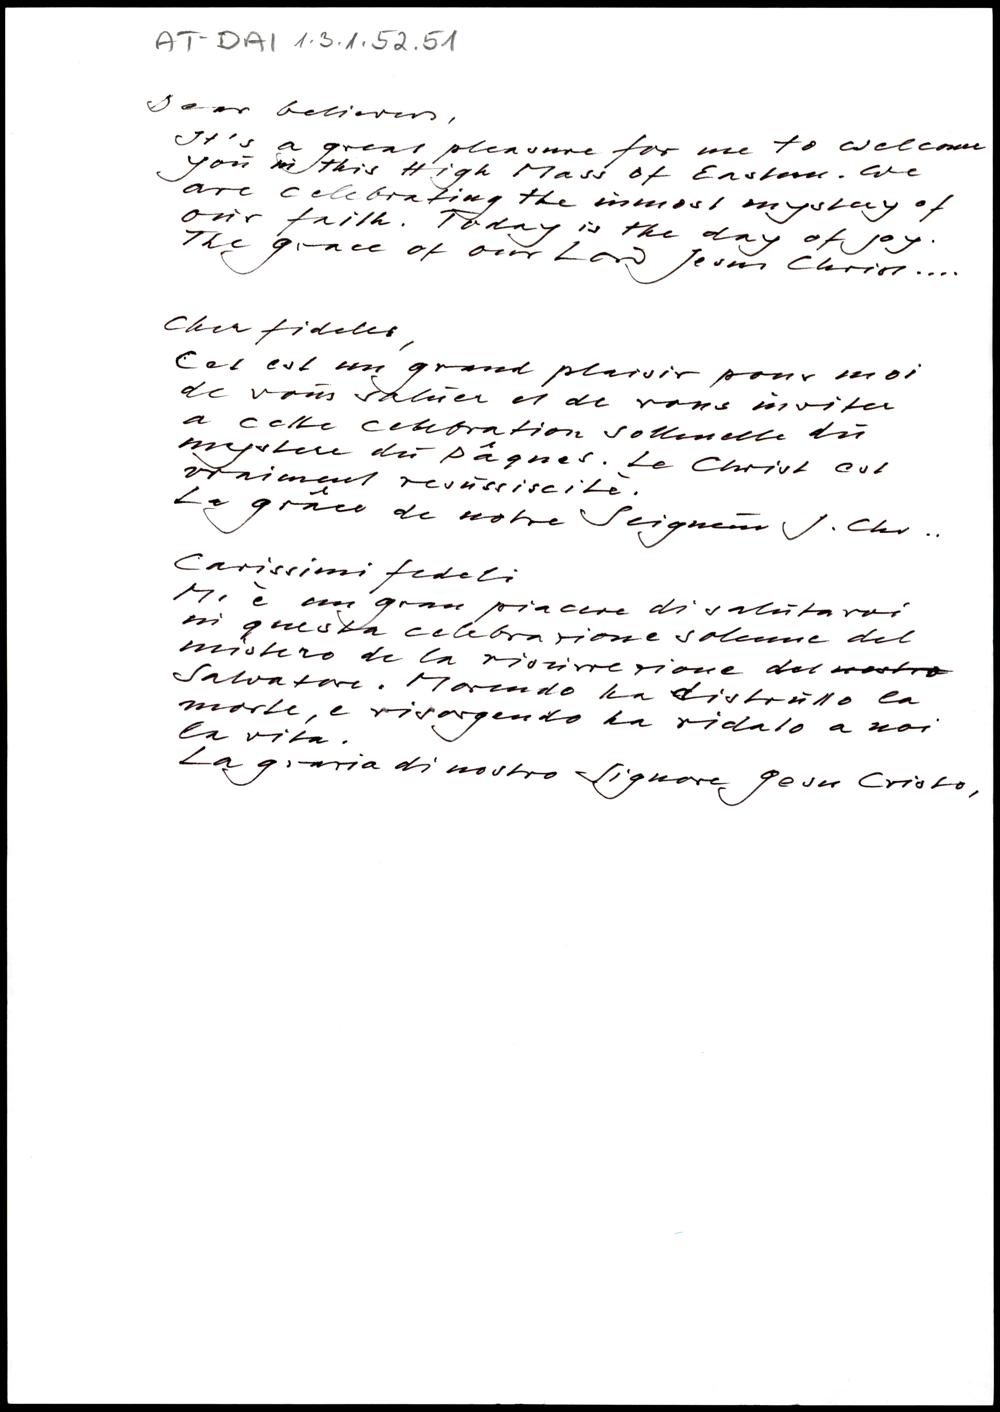 AT-DAI 1.3.1.52.51
Dear believers,
It's a great pleasure for me to welcome
you in this High Mass of Eastern. We
are celebrating the inmost mystery of
our faith. Today is the day of joy.
The grace of our Lord Jesus Christ....
Cher fideles,
Cet est un grand plaisir pour moi
de vous saluer et de vous inviter
a cette celebration sollenelle du
mystere du Pâques. Le Christ est
vraiment resussiscité.
La grâce de notre Seigneur J. Chr..
Carissimi fedeli
Mi è un gran piacere di salutarvi
in questa celebrazione solenne del
mistero de la risurrezione del nostro
Salvatore. Morendo ha distrutto la
morte, e risorgendo ha ridato a noi
la vita.
La grazia di nostro Signore Gesu Cristo,